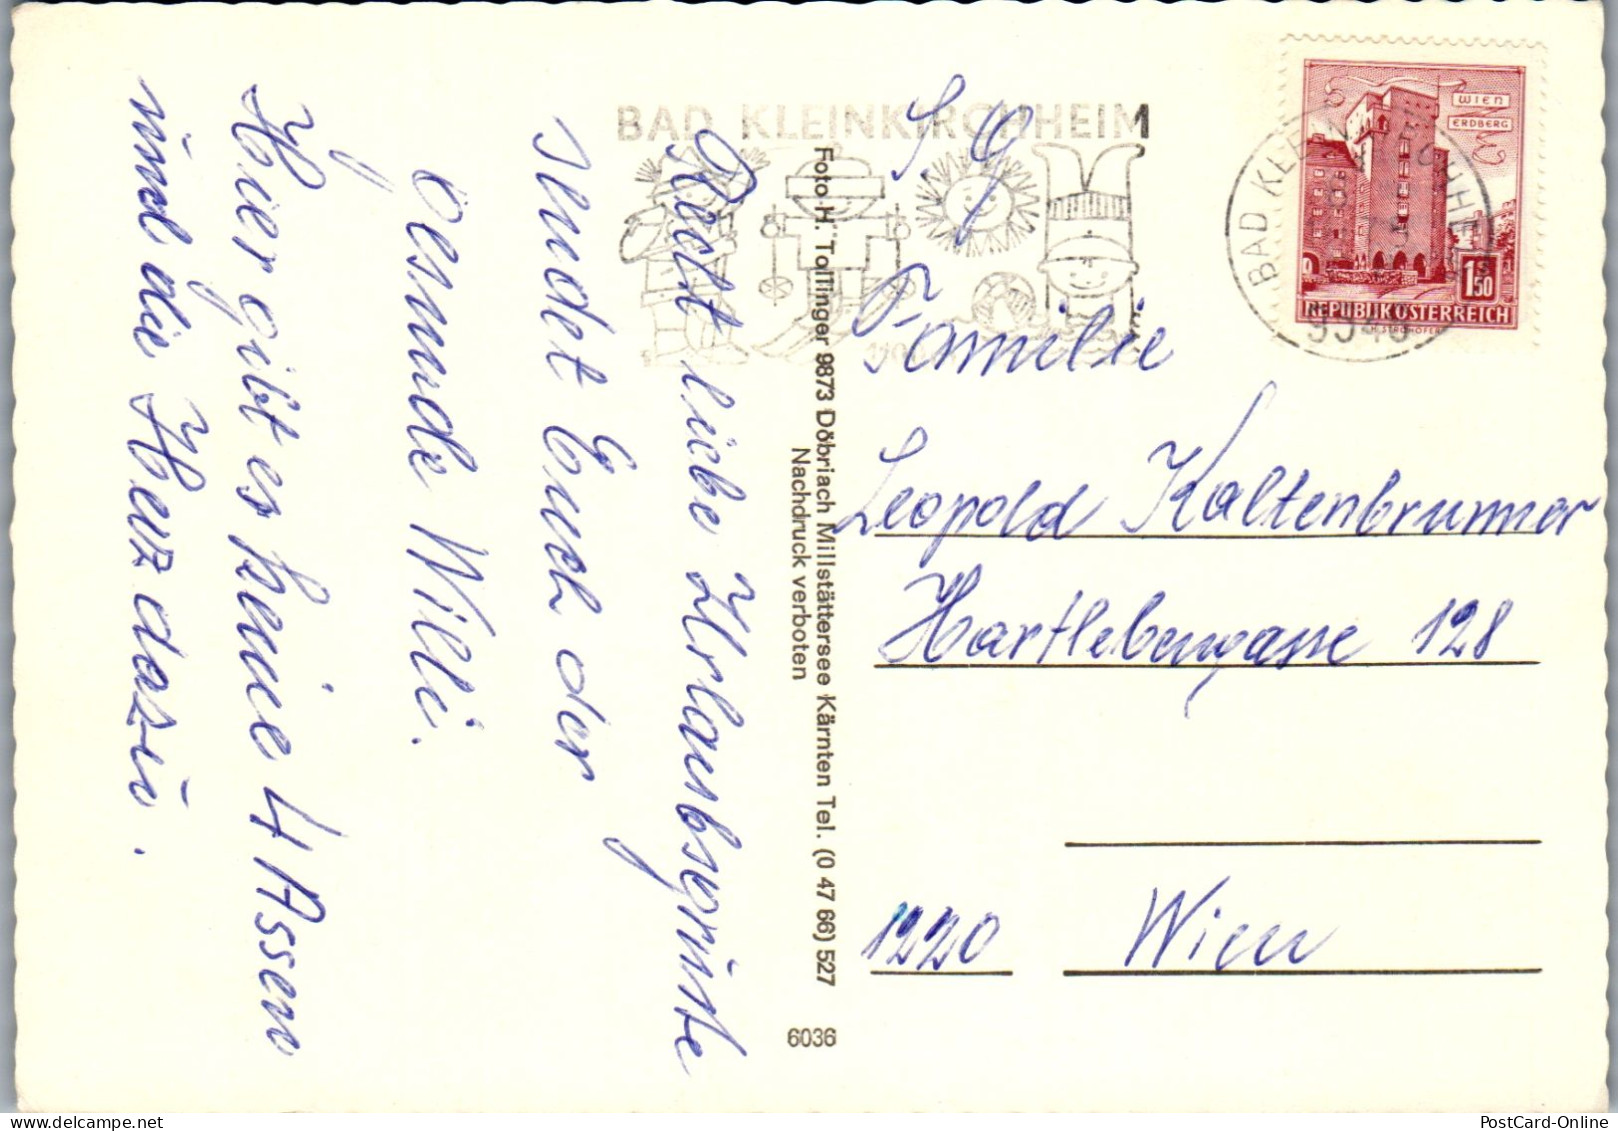 Recht liebe Urlaubsgrüße
sendet Euch der
Gesunde Willi.
Hier gibt es keine 4 Assen
und die Herz dazu.
BAD KLEINKIRCHHEIM
Foto H. Tollinger 9873 Döbriach Millstättersee Kärnten Tel. (0 47 66) 527
Nachdruck verboten
6036
WIEN
ERDBERG
1.50
REPUBLIK ÖSTERREICH
BAD KLEINKIRCHHEIM
S. g.
Familie
Leopold Kaltenbrunner
Hartlebengasse 128
1220 Wien
PostCard-Online